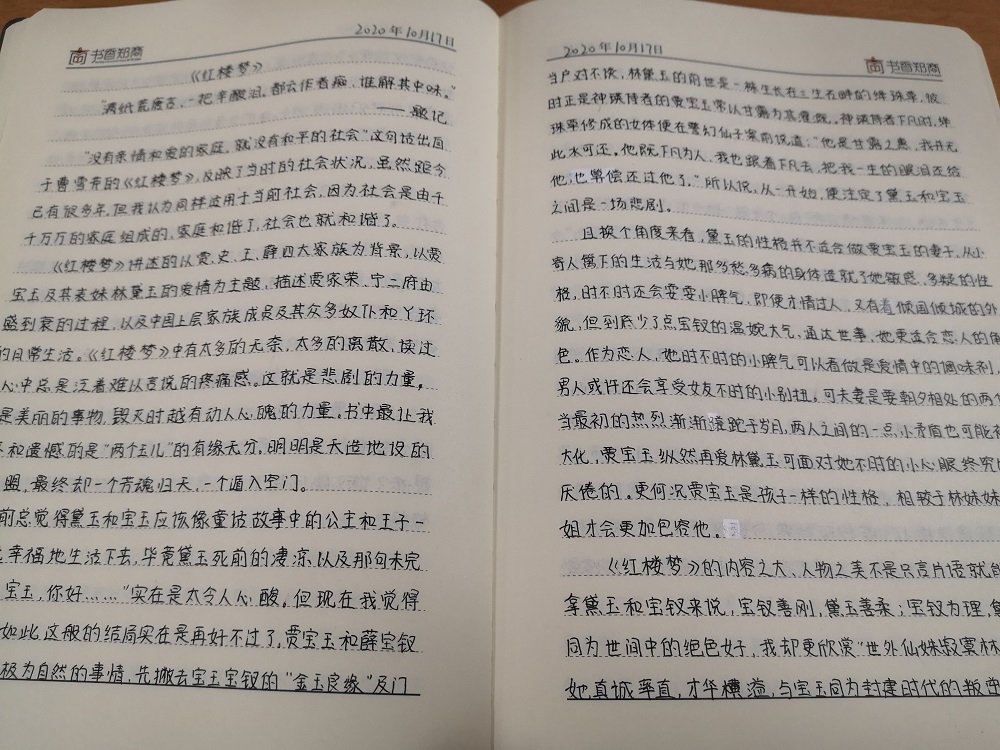 书香知商
2020年10月17日
《红楼梦》
"满纸荒唐言,一把辛酸泪。都云作者痴,谁解其中味。"
——题记
"没有亲情和爱的家庭,就没有和平的社会"这句话出自
于曹雪芹的《红楼梦》,反映了当时的社会状况,虽然距今
已有很多年,但我认为同样适用于当前社会,因为社会是由千
千万万的家庭组成的,家庭和谐了,社会也就和谐了。
《红楼梦》讲述的以贾、史、王、薛四大家族为背景,以贾
宝玉及其表妹林黛玉的爱情为主题,描述贾家荣、宁二府由
盛到衰的过程,以及中国上层家族成员及其众多奴仆和丫环
的日常生活。《红楼梦》中有太多的无奈,太多的离散,读过
心中总是泛着难以言说的疼痛感。这就是悲剧的力量,
是美丽的事物,毁灭时越有动人心魄的力量。书中最让我
和遗憾的是"两个玉儿"的有缘无分,明明是天造地设的
盟,最终却一个芳魂归天,一个遁入空门。
前总觉得黛玉和宝玉应该像童话故事中的公主和王子一
幸福地生活下去,毕竟黛玉死前的凄凉以及那句未完
宝玉,你好……"实在是太令人心酸。但现在我觉得
如此,这般的结局实在是再好不过了,贾宝玉和薛宝钗
极为自然的事情,先撇去宝玉宝钗的"金玉良缘"及门
2020年10月17日
书香知商
当户对不谈,林黛玉的前世是一株生长在三生石畔的绛珠草,彼
时正是神瑛侍者的贾宝玉常以甘露为其灌溉。神瑛侍者下凡时,绛
珠草修成的女体便在警幻仙子案前说道:"他是甘露之惠,我并无
此水可还。他既下凡为人,我也跟着下凡去,把我一生的眼泪还给
他,也算偿还过他了。"所以说,从一开始,便注定了黛玉和宝玉
之间是一场悲剧。
且换个角度来看,黛玉的性格并不适合做贾宝玉的妻子,从小
寄人篱下的生活与她那多愁多病的身体造就了她敏感、多疑的性
格,时不时还会耍耍小脾气,即便才情过人,又有着倾国倾城的外
貌,但到底少了点宝钗的温婉大气,通达世事,她更适合恋人的角
色。作为恋人,她时不时的小脾气可以看做是爱情中的调味剂,
男人或许还会享受女友不时的小别扭。可夫妻是要朝夕相处的两个
当最初的热烈渐渐滚跎于岁月,两人之间的一点小矛盾也可能被
大化,贾宝玉纵然再爱林黛玉可面对她不时的小心眼终究
厌倦的。更何况贾宝玉是孩子一样的性格,相较于林妹妹
姐才会更加包容他。
《红楼梦》的内容之大、人物之美不是只言片语就能
拿黛玉和宝钗来说,宝钗善刚,黛玉善柔;宝钗为理,黛
同为世间中的绝色女子,我却更欣赏"世外仙姝寂寞林
她真诚率直,才华横溢,与宝玉同为封建时代的叛逆